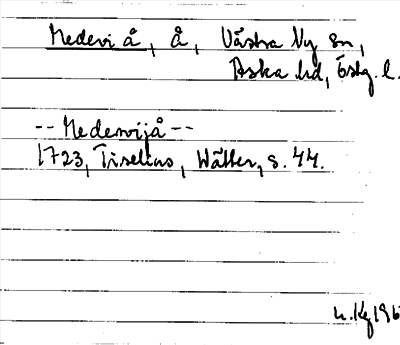 Medevi å, å, Västra Ny sn,
Aska hd, Östg. l.
-- Medewijå --
1723, Tiselius, Wätter, s. 44.